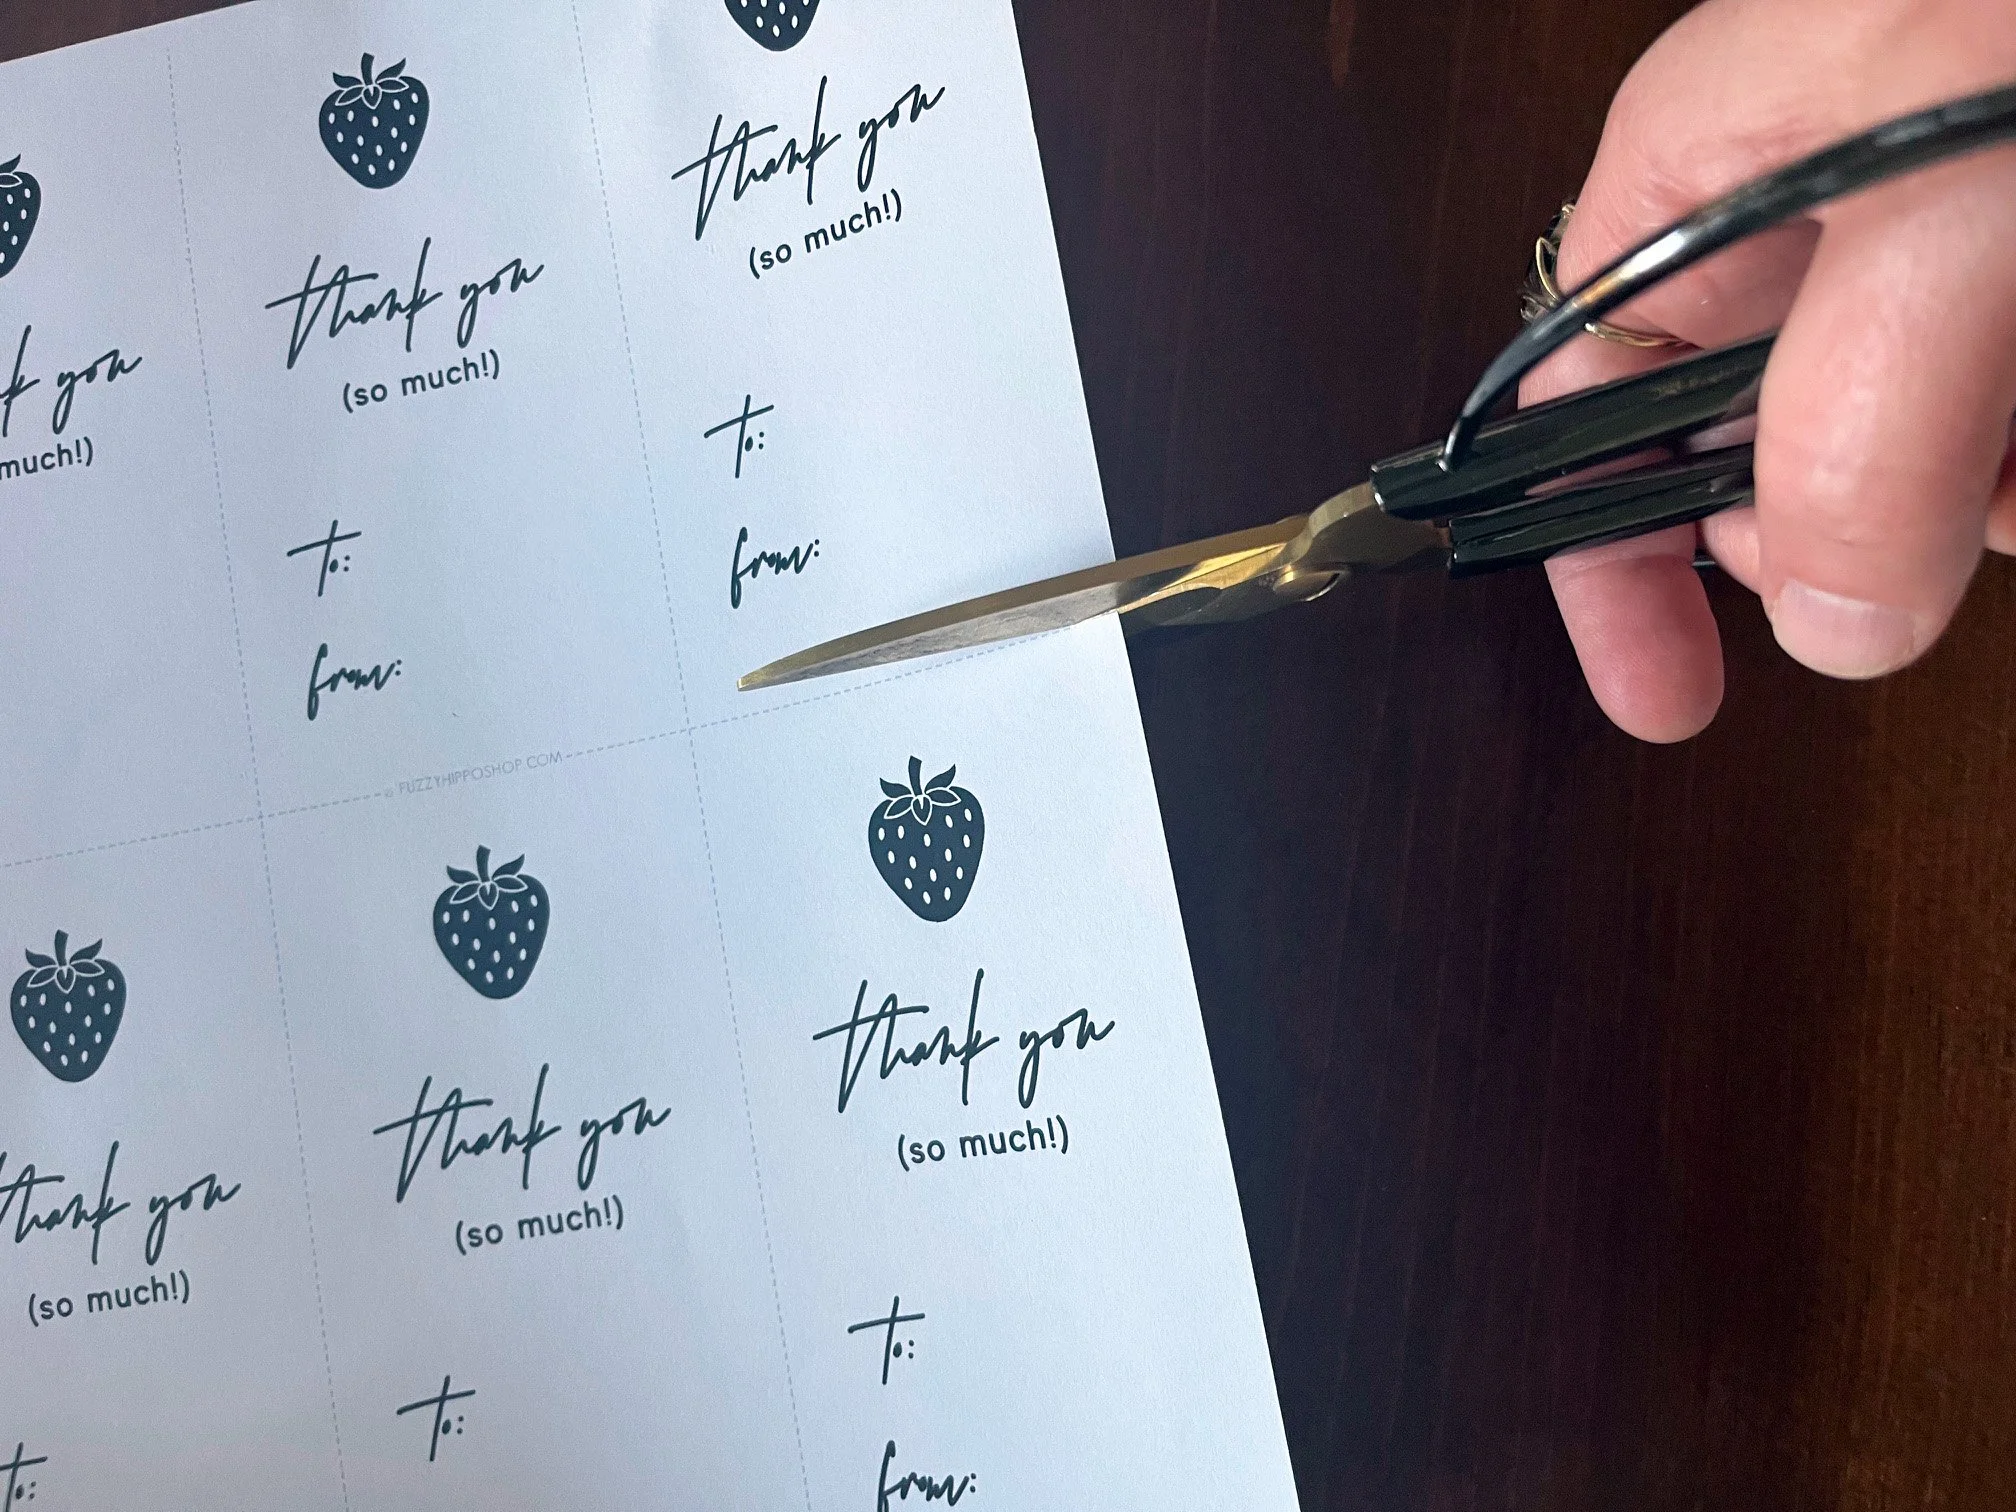 thank you
(so much!)
to:
from:
thank you
(so much!)
to:
from:
you
much!)
© FUZZYHIPPOSHOP.COM
thank you
(so much!)
to:
thank you
(so much!)
to:
thank you
(so much!)
to:
from: